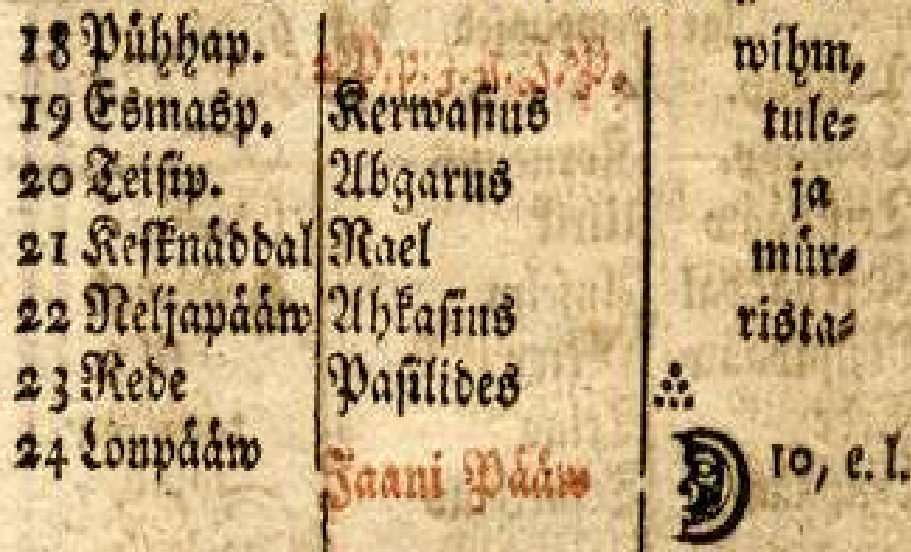 18 Pühhap. P. p. 3. K. J. P. wihm,
19 Esmasp. Kerwasius tule⸗
20 Teisip. Abgarus ja
21 Kesknäddal Rael mür⸗
22 Neljapääw Ahkasius rista⸗
23 Rede Pasilides
24 Loupääw Jaani Pääw 10, e. l.